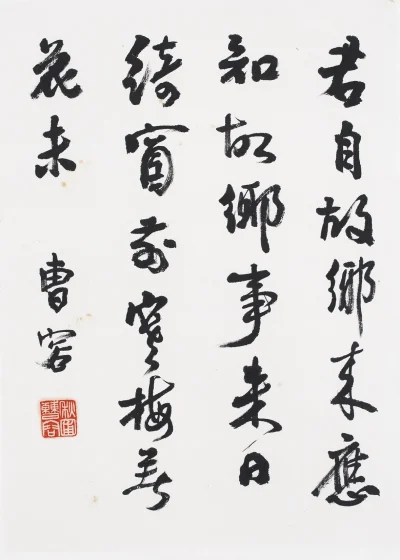 君自故鄉來應
知故鄉事來日
綺窗前寒梅著
花未
曹容
秋圃